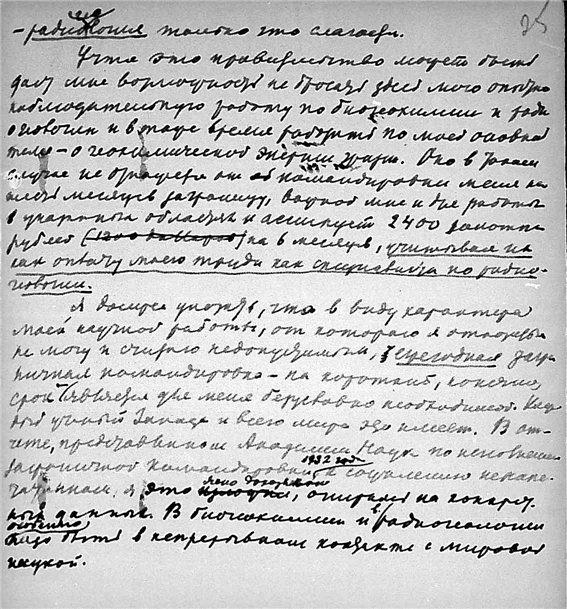 35
- радиогеология только это слагаем.
Учтя это правительство может быть
даст мне возможность не бросая здесь мою опытно
наблюдательную работу по биогеохимии и ради
огеологии и в тоже время работать по моей основной
теме - о геохимической энергии жизни. Оно в таком
случае не откажется от командировки меня на
шесть месяцев заграницу, важной мне и для работы
в указанных областях и ассигнует 2400 золотых
рублей (1200 долларов) на 6 месяцев, учитывая их
как оплату моего труда как специалиста по радио-
геологии.
Я должен указать, что в виду характера
моей научной работы, от которого я отказаться
не могу и считаю недопустимым, ежегодная загра
ничная командировка - на короткий, конечно,
срок является для меня безусловно необходимой. Каж
дый ученый Запада и всего мира это имеет. В от-
чете, представленном Академии Наук по исполнении
заграничной командировки 1932 года, к сожалению ненапе-
чатанном, я это ясно доказываю, опираясь на конкрет
ные данные. В биогеохимии и в радиогеологии
особенно надо быть в непрерывном контакте с мировой
наукой.